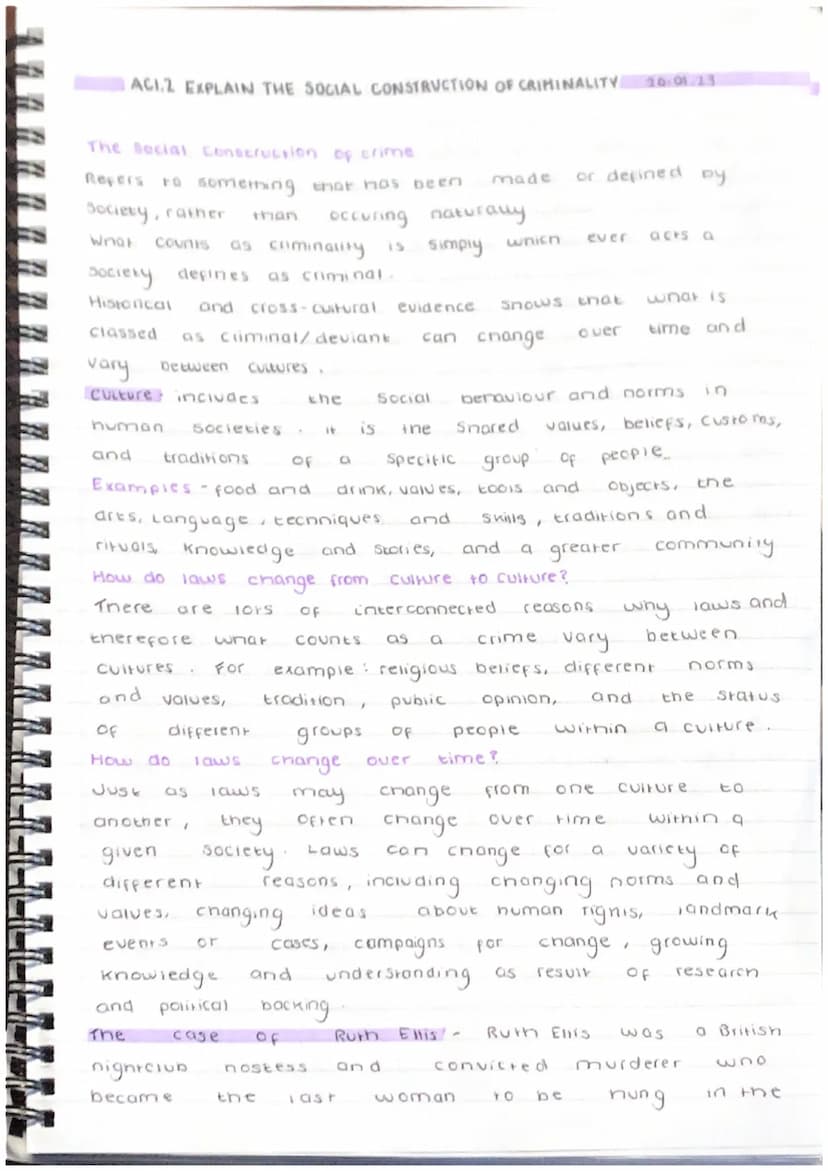 AC1.2 EXPLAIN THE SOCIAL CONSTRUCTION OF CRIMINALITY 20.01.23
The Social Construction of crime
Refers to something that has been made or defined by
society, rather than occuring naturally
What counts as criminality is simply which ever acts a
society defines as criminal.
Historical and cross-cultural evidence shows that what is
classed as criminal/deviant can change over time and
vary between cultures.
Culture: includes the social behaviour and norms in
human societies. it is the shared values, beliefs, customs,
and traditions of a specific group of people.
Examples - food and drink, values, tools and objects, the
arts, language, techniques and skills, traditions and
rituals, knowledge and stories, and a greater community
How do laws change from culture to culture?
There are lots of interconnected reasons why laws and
therefore what counts as a crime vary between
cultures. For example: religious beliefs, different norms
and values, tradition, public opinion, and the status
of different groups of people within a culture.
How do laws change over time?
Just as laws may change from one culture to
another, they often change over time within a
given society. Laws can change for a variety of
different reasons, including changing norms and
values, changing ideas about human rights, landmark
events or cases, campaigns for change, growing
knowledge and understanding as result of research
and political backing.
The case of Ruth Ellis - Ruth Ellis was a British
nightclub hostess and convicted murderer who
became the last woman to be hung in the